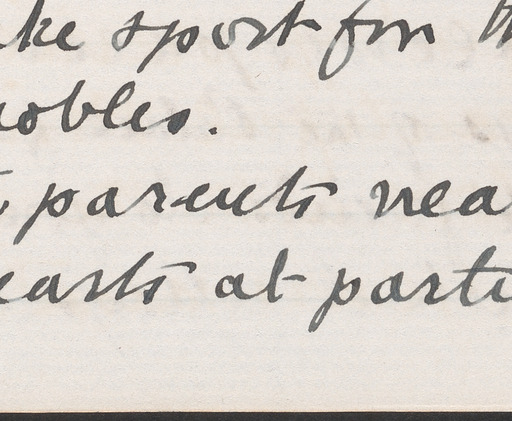 ke sport for th
nobles.
t parents nea
earts at parti